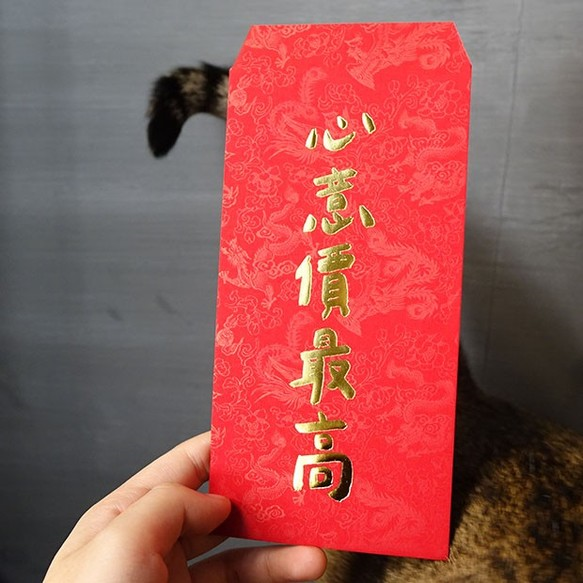 心意價最高